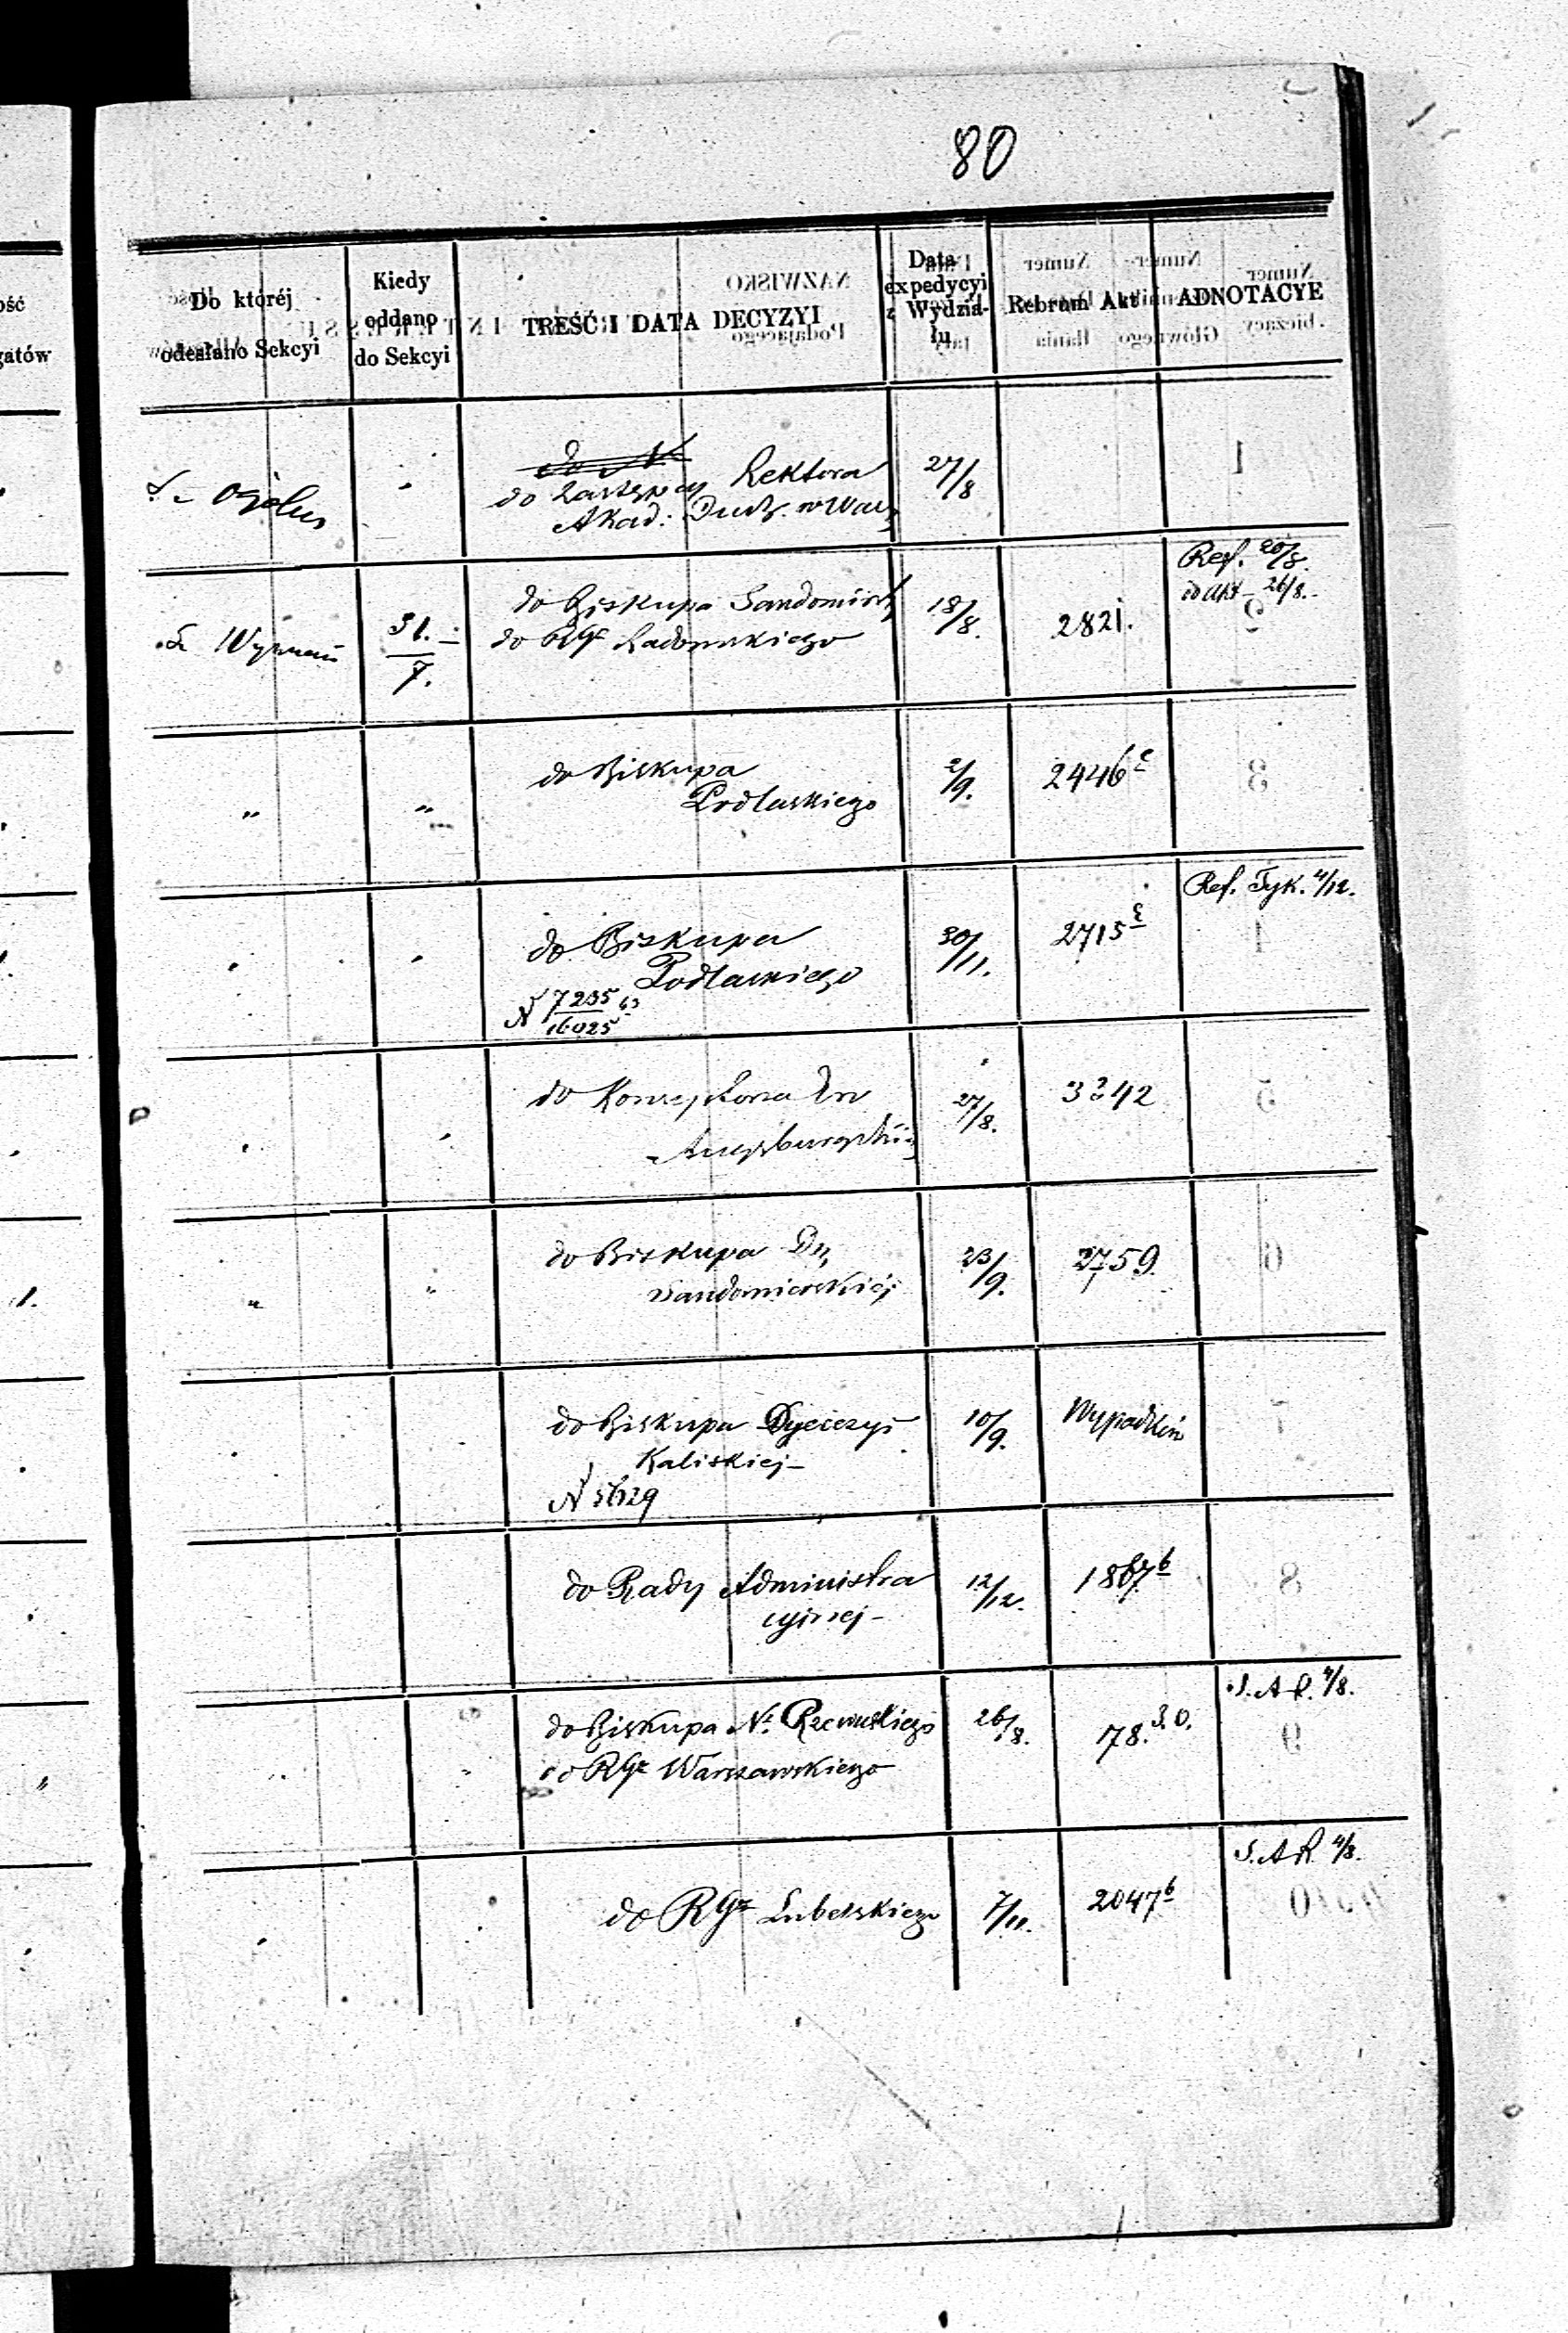 80
Do któréj odesłano Sekcyi
Kiedy oddano do Sekcyi
TREŚĆ I DATA DECYZYI
Data expedycyi z Wydziału
Rebrum Akt
ADNOTACYE
do N
do Zastępcy Rektora
Akad: Duch. w Warsz
27/8
S. Wyznań
31. 7.
do Biskupa Sandomirsk
do RGr Radomskiego
18/8.
2821.
Ref. 20/8.
do Akt 26/8.
" "
do Biskupa
Podlaskiego
2/9.
2446
do Biskupa
Podlaskiego
N 7235/16025
30/11.
2715
Ref. Tyk. 4/12.
do Konsystorza Ew
Augsburgskiej
27/8.
3242
" "
do Biskupa Dy
Sandomierskiej
23/9.
2759.
do Biskupa Dyecezyi
Kaliskiej
N
10/9.
do Rady Administra
cyjnej
12/12.
1867 b
do Biskupa N. Rzewuskiego
do RGr Warszawskiego
26/8.
78.
S. A. R. 4/8.
do RGr Lubelskiego
7/11.
2047 b
S. A. R. 4/8.